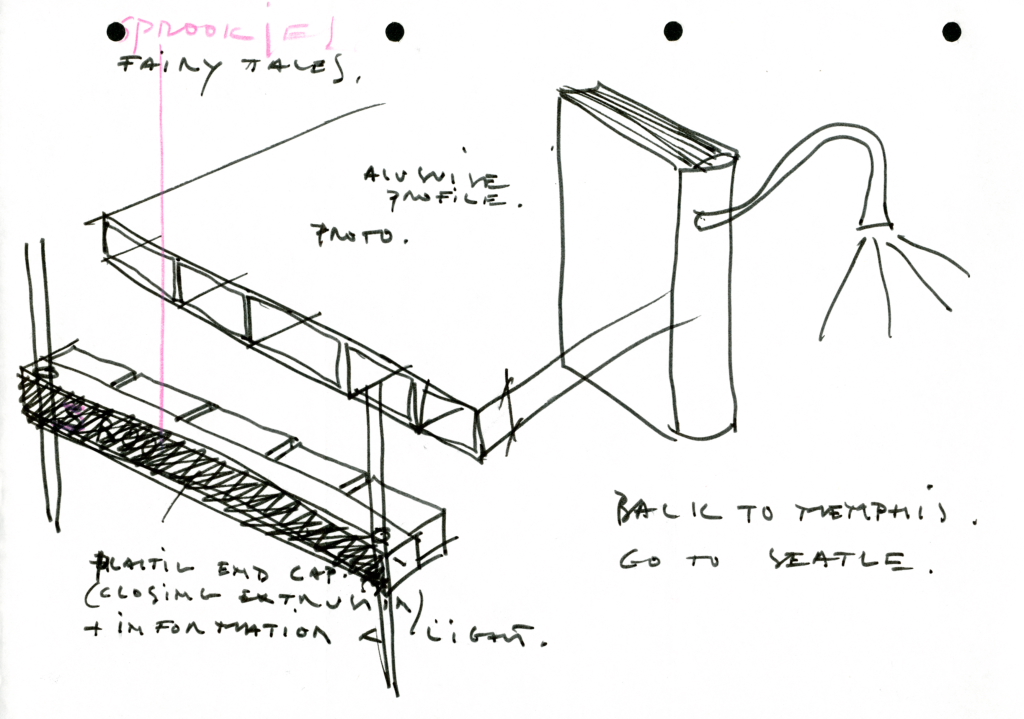 SPROOKJES
FAIRY TALES.
PROFILE.
PROTO.
BACK TO MEMPHIS.
GO TO SEATLE.
PLASTIC END CAP.
(CLOSING EXTRUSION)
+ INFORMATION < LIGHT.